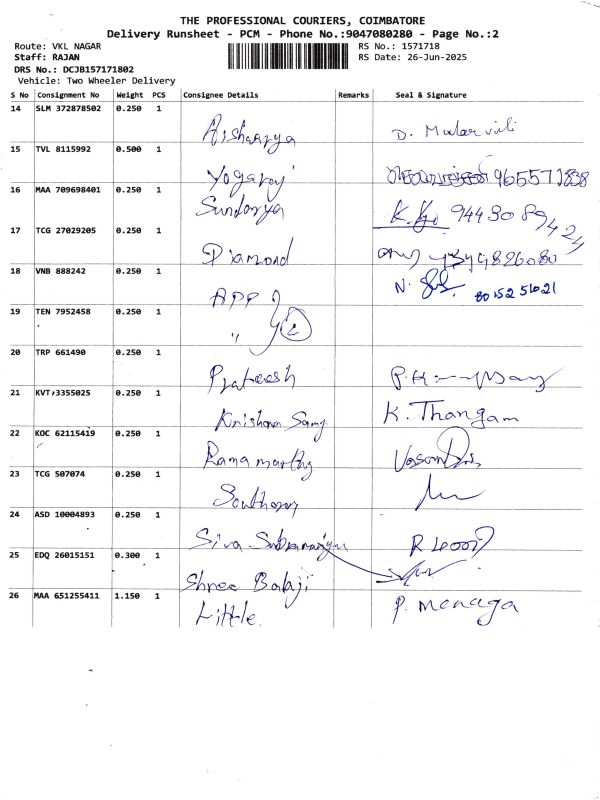 THE PROFESSIONAL COURIERS, COIMBATORE
Delivery Runsheet - PCM - Phone No.:9047080280 - Page No.:2
Route: VKL NAGAR
Staff: RAJAN
DRS No.: DCJB157171802
Vehicle: Two Wheeler Delivery
RS No.: 1571718
RS Date: 26-Jun-2025
S No Consignment No Weight PCS Consignee Details Remarks Seal & Signature
14 SLM 372878502 0.250 1
Aisharya D. Malarvili
15 TVL 8115992 0.500 1
Yogaraj 9655771838
16 MAA 709698401 0.250 1
Sundarya 94430 89424
17 TCG 27029205 0.250 1
Diamond
18 VNB 888242 0.250 1
APP N. 80152 51021
19 TEN 7952458 0.250 1
" 2
20 TRP 661490 0.250 1
Prateesh
21 KVT 3355025 0.250 1
Krishna Samy K. Thangam
22 KOC 62115419 0.250 1
Rama marthy
23 TCG 507074 0.250 1
24 ASD 10004893 0.250 1
Siva
25 EDQ 26015151 0.300 1
Shree Balaji
26 MAA 651255411 1.150 1
Little. P. Menaga